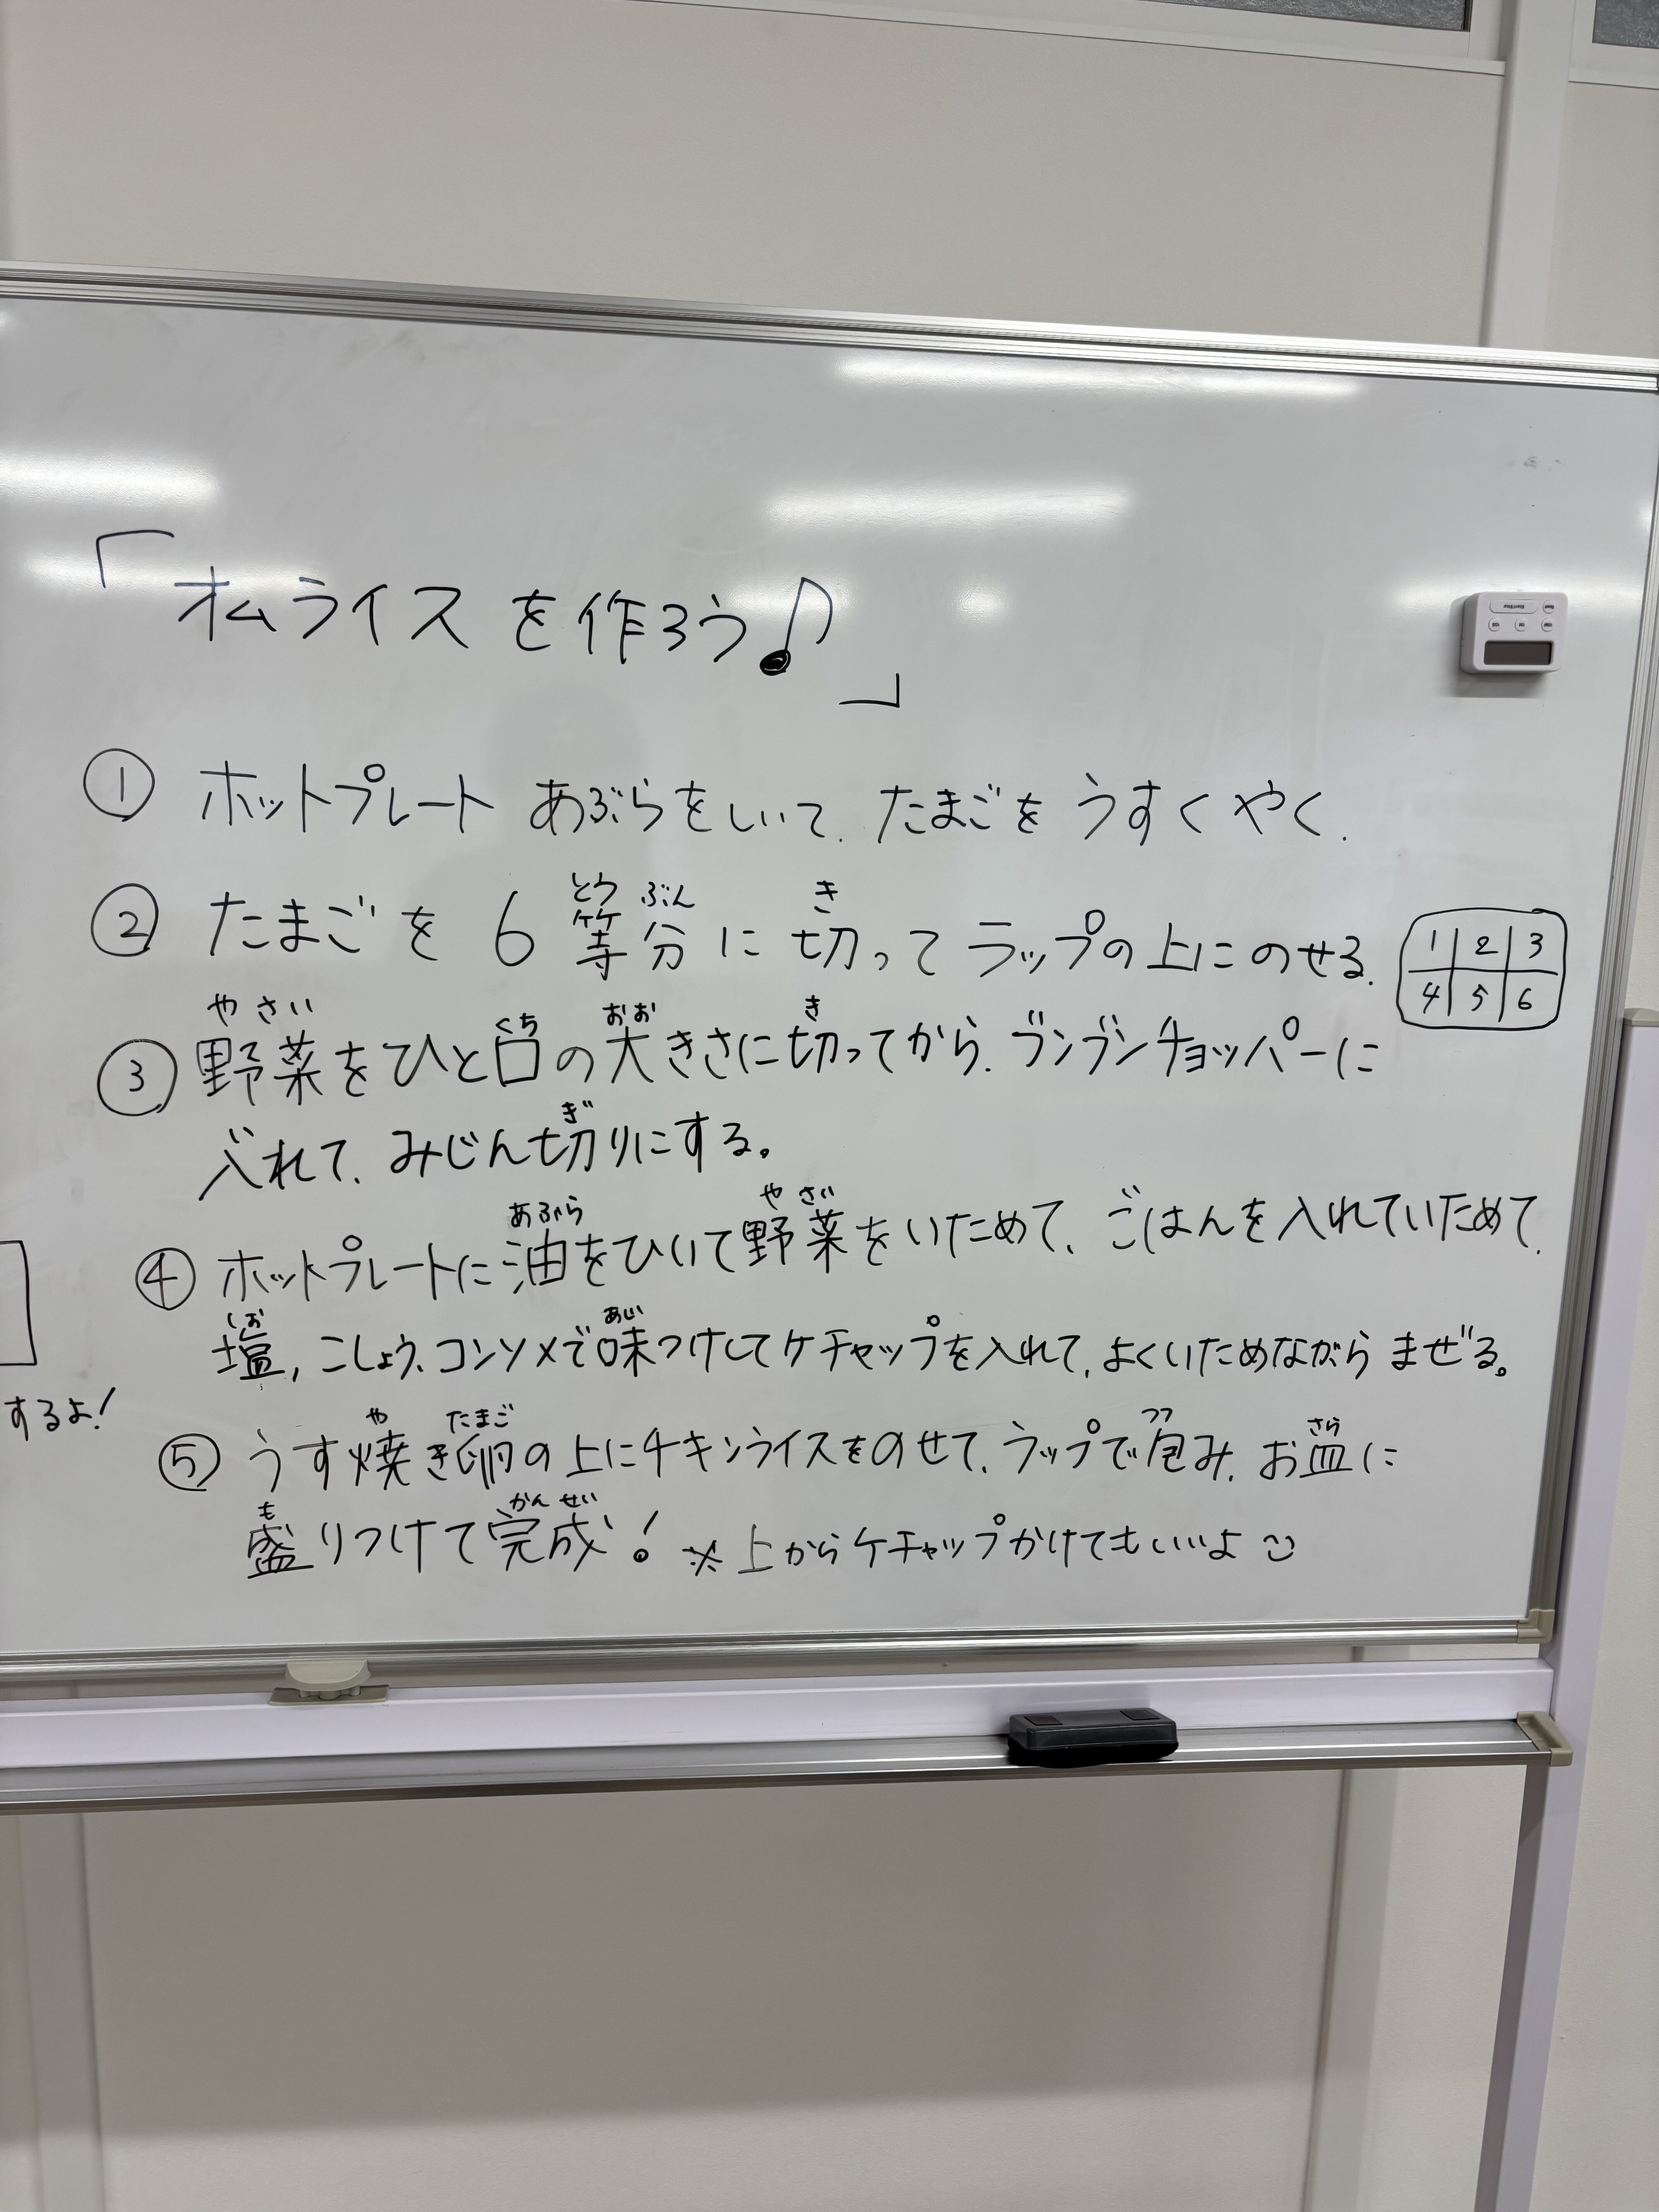 「オムライスを作ろう♪」
① ホットプレート あぶらをしいて、たまごをうすくやく.
とう ぶん き
② たまごを 6 等分に切ってラップの上にのせる.
1 2 3
4 5 6
や さい くち おお き
③ 野菜をひと口の大きさに切ってから、ブンブンチョッパーに
ぎ
入れて、みじん切りにする。
あぶら や さい
④ ホットプレートに油をひいて野菜をいためて、ごはんを入れていためて、
しお あじ
塩、こしょう、コンソメで味つけしてケチャップを入れて、よくいためながらまぜる。
するよ!
や たまご つつ さら
⑤ うす焼き卵の上にチキンライスをのせて、ラップで包み、お皿に
も かん せい
盛りつけて完成! ※上からケチャップかけてもいいよ